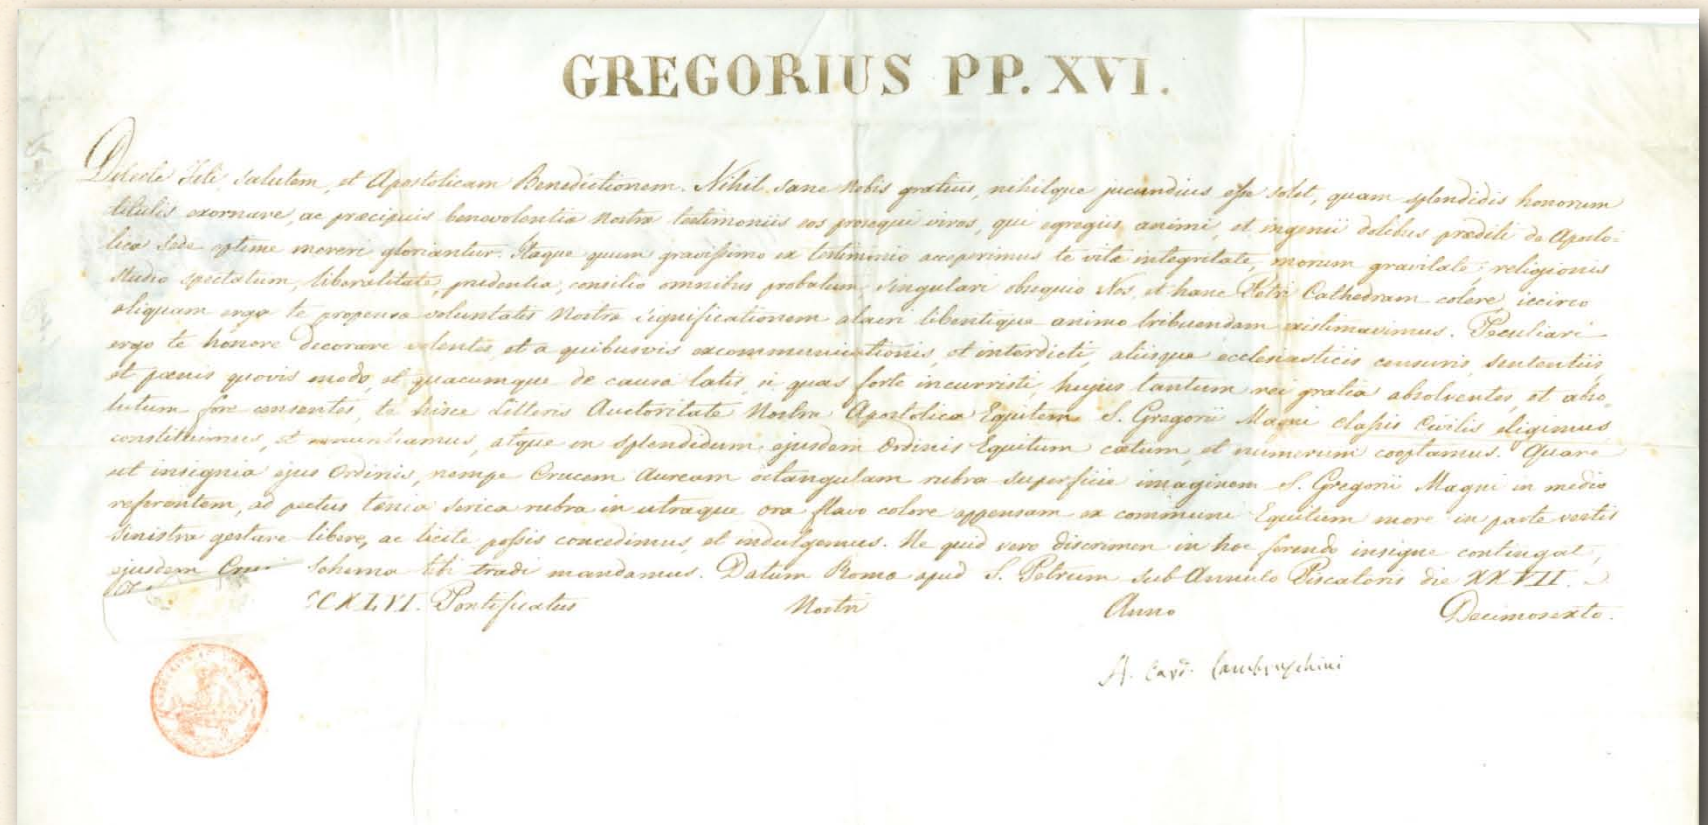 GREGORIUS PP. XVI.
Dilecte Fili, salutem, et Apostolicam Benedictionem. Nihil sane Nobis gratius, nihilque jucundius esse solet, quam splendidis honorum
titulis exornare, ac præcipuis benevolentiæ Nostræ testimoniis eos prosequi viros, qui egregiis animi, et ingenii dotibus præditi de Aposto=
lica Sede optime mereri gloriantur. Itaque quum gravissimo ex testimonio acceperimus te vitæ integritate, morum gravitate, religionis
studio spectatum, liberalitate, prudentia, consilio omnibus probatum, singulari obsequio Nos, et hanc Petri Cathedram colere, iccirco
aliquam erga te propensæ voluntatis Nostræ significationem alacri libentique animo tribuendam existimavimus. Peculiari
ergo te honore decorare volentes, et a quibusvis excommunicationis, et interdicti, aliisque ecclesiasticis censuris, sententiis
et pœnis quovis modo, et quacumque de causa latis, si quas forte incurristi, hujus tantum rei gratia absolventes, et abso=
lutum fore censentes, te hisce Litteris Auctoritate Nostra Apostolica Equitem S. Gregorii Magni classis Civilis eligimus,
constituimus, et renuntiamus, atque in splendidum ejusdem Ordinis Equitum cœtum, et numerum cooptamus. Quare
ut insignia ejus Ordinis, nempe Crucem Auream octangulam rubra superficie imaginem S. Gregorii Magni in medio
referentem, ad pectus tænia serica rubra in utraque ora flavo colore appensam ex communi Equitum more in parte vestis
sinistra gestare libere, ac licite possis concedimus, et indulgemus. Ne quid vero discrimen in hoc ferendo insigne contingat,
ejusdem schema tibi tradi mandamus. Datum Romæ apud S. Petrum sub Annulo Piscatoris die XXVII.
CCXLVI. Pontificatus Nostri Anno Decimosexto.
A. Card. Lambruschini